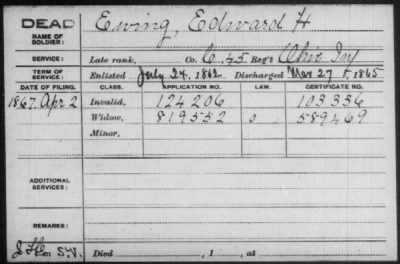 DEAD Ewing, Edward H
NAME OF SOLDIER:
SERVICE: Late rank, Co. C. 45 Reg't Ohio Inf
TERM OF SERVICE: Enlisted July 24, 1862 Discharged Mar 27, 1865
DATE OF FILING. CLASS. APPLICATION NO. LAW. CERTIFICATE NO.
1867. Apr 2 Invalid, 124206 103336
Widow, 819552 0 589469
Minor,
ADDITIONAL SERVICES:
REMARKS:
S.V. Died , 1 , at